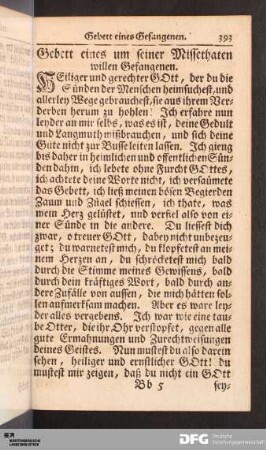 Gebett eines Gefangenen. 393
Gebett eines um seiner Missethaten
willen Gefangenen.
HEiliger und gerechter GOtt, der du die
Sünden der Menschen heimsuchest, und
allerley Wege gebrauchest, sie aus ihrem Ver-
derben herum zu hohlen! Ich erfahre nun
leyder an mir selbs, was es ist, deine Gedult
und Langmuth mißbrauchen, und sich deine
Güte nicht zur Busse leiten lassen. Ich gieng
bis daher in heimlichen und offentlichen Sün-
den dahin, ich lebete ohne Furcht GOttes,
ich achtete deine Worte nicht, ich versäumete
das Gebett, ich ließ meinen bösen Begierden
Zaum und Zügel schiessen, ich thate, was
mein Herz gelüstet, und verfiel also von ei-
ner Sünde in die andere. Du liessest dich
zwar, o treuer GOtt, dabey nicht unbezeu-
get; du warnetest mich, du klopfetest an mei-
nem Herzen an, du schröcketest mich bald
durch die Stimme meines Gewissens, bald
durch dein kräftiges Wort, bald durch an-
dere Zufälle von aussen, die mich hätten sol-
len aufmerksam machen. Aber es ware ley-
der alles vergebens. Ich war wie eine tau-
be Otter, die ihr Ohr verstopfet, gegen alle
gute Ermahnungen und Zurechtweisungen
deines Geistes. Nun mustest du also darein
sehen, heiliger und ernstlicher GOtt! du
mustest mir zeigen, daß du nicht ein GOtt
Bb 5 sey-
DFG Deutsche
Forschungsgemeinschaft